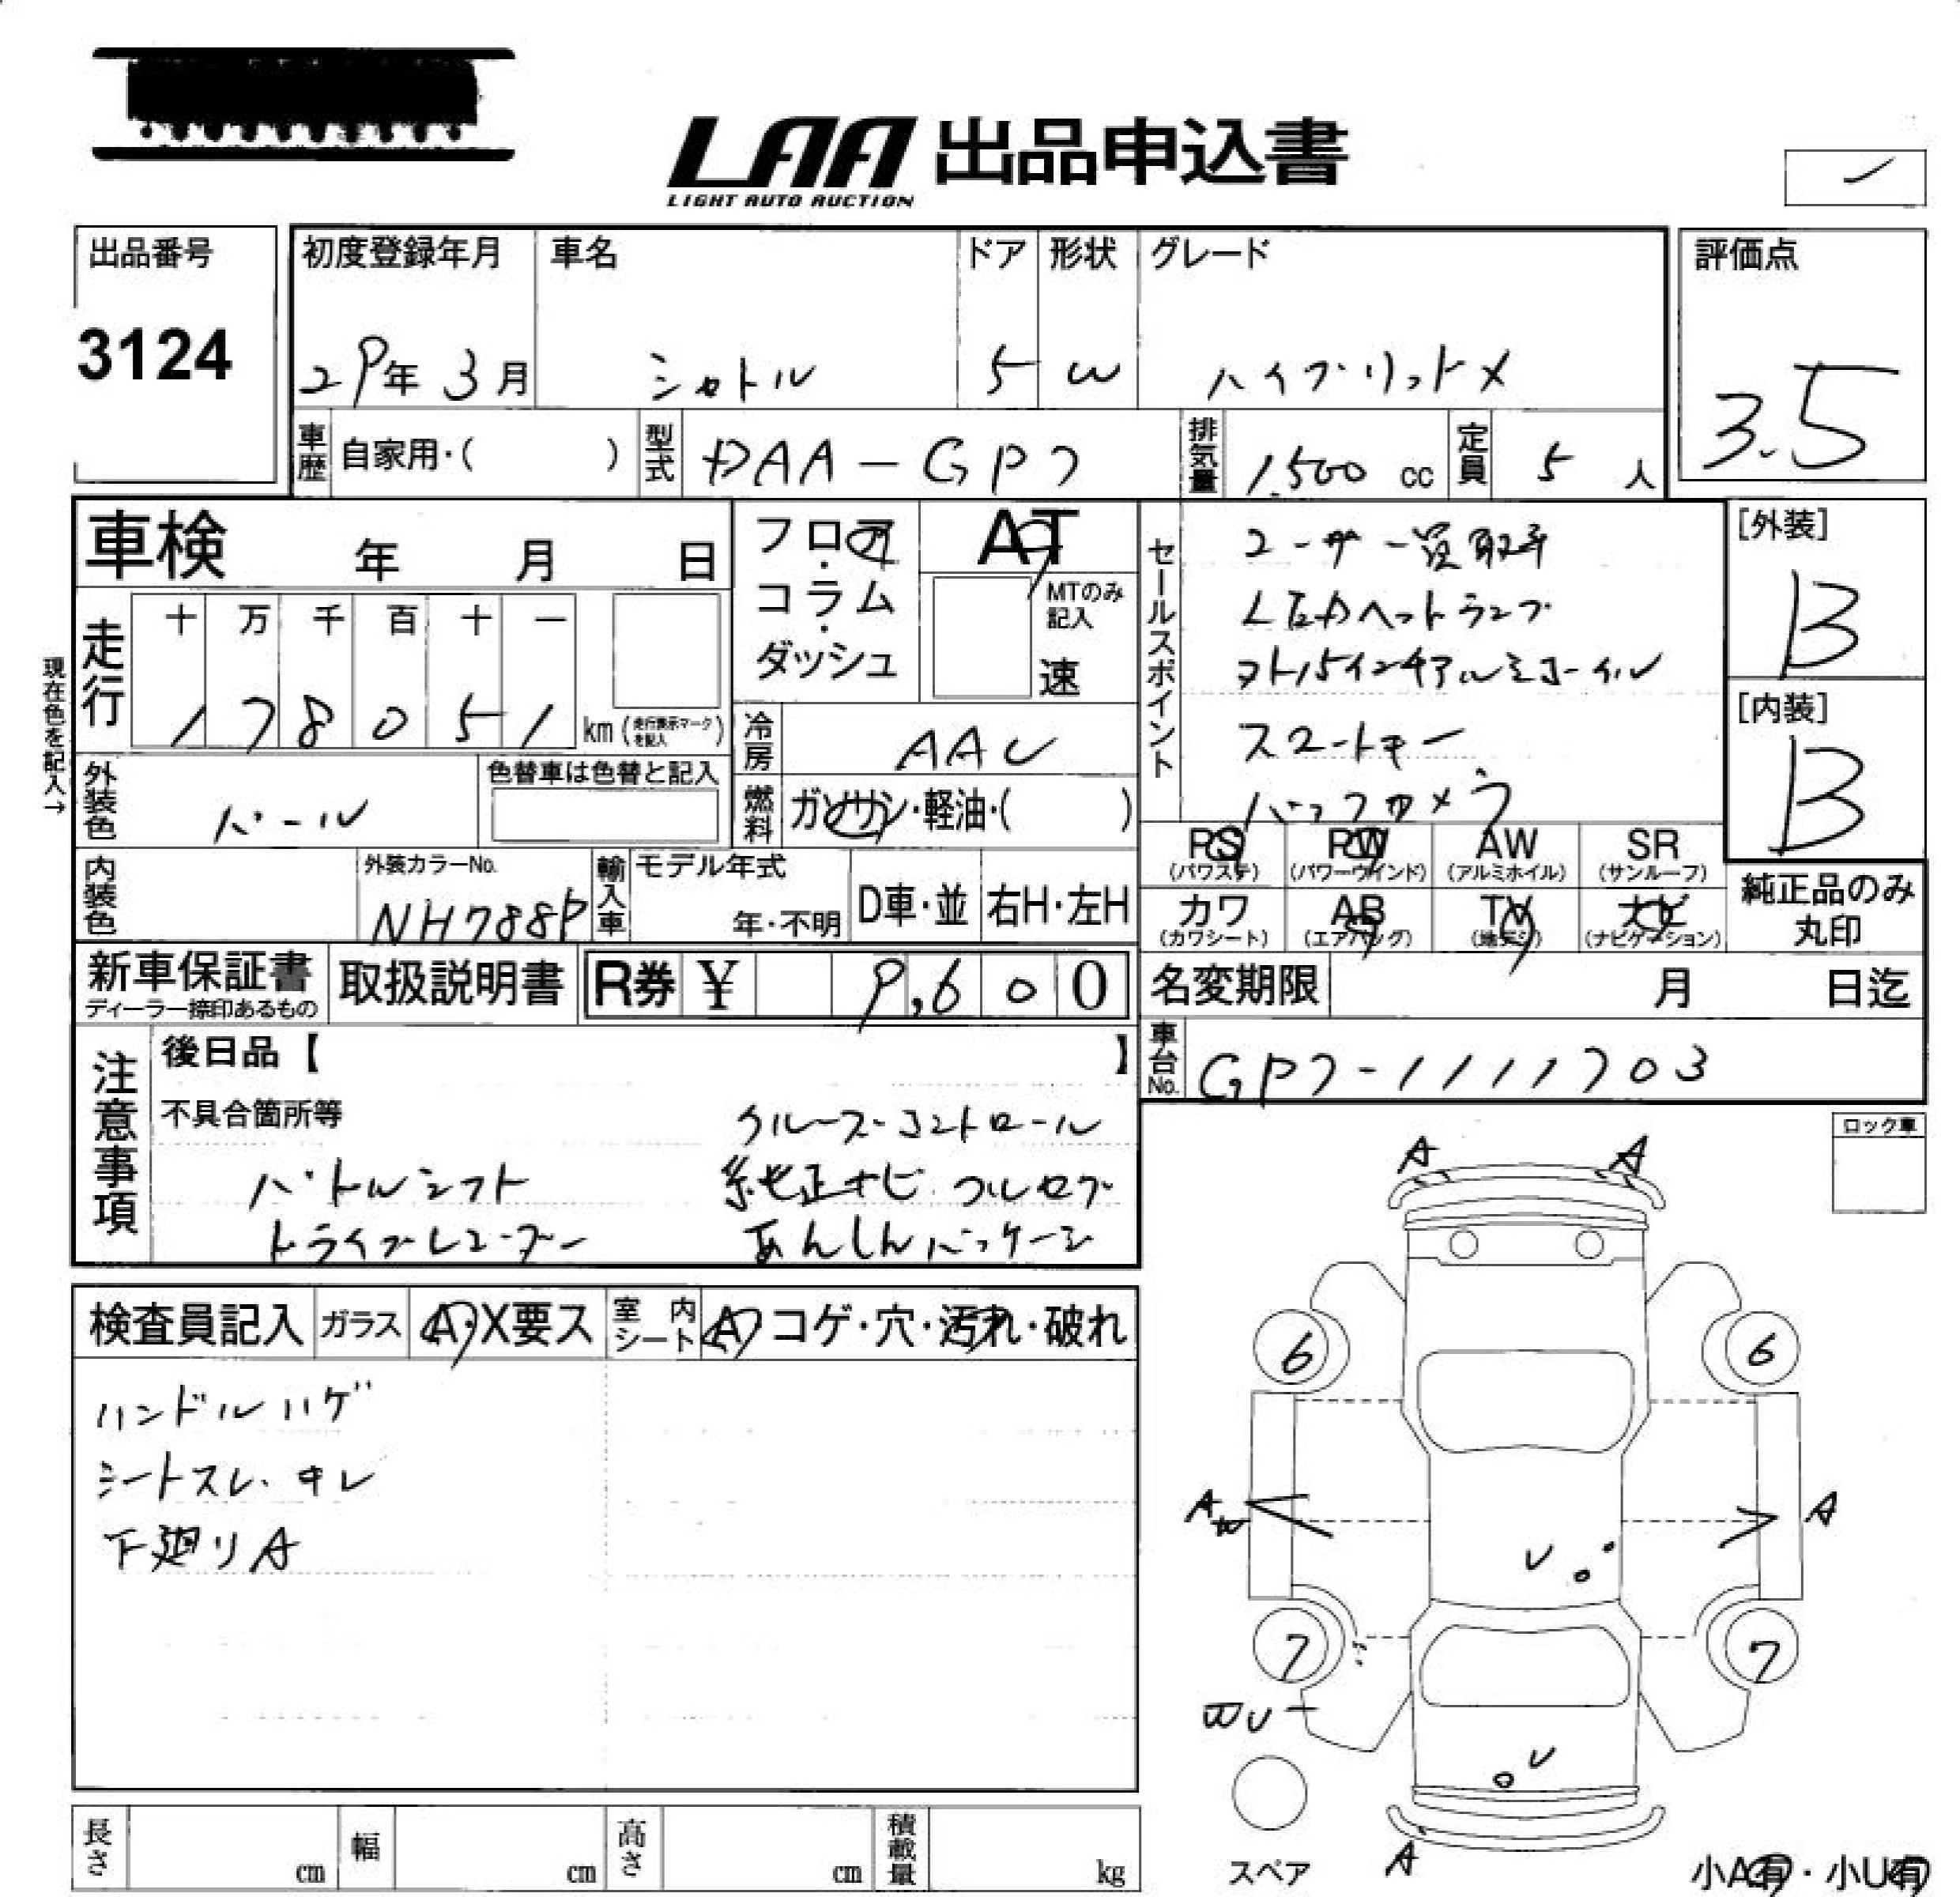 LAA 出品申込書
LIGHT AUTO AUCTION
出品番号
3124
初度登録年月
29年 3月
車名
シャトル
ドア
5
形状
W
グレード
ハイブリットX
評価点
3.5
車歴
自家用・( )
型式
DAA-GP7
排気量
1,500 cc
定員
5 人
車検 年 月 日
フロア・コラム・ダッシュ
AT
MTのみ記入
速
セールスポイント
ユーザー買取車
LEDヘットランプ
ヌトバインチアルミホイル
スマートキー
バックカメラ
[外装]
B
[内装]
B
現在色を記入→
走行
十 万 千 百 十 一
1 7 8 0 5 1
km (走行表示マークを記入)
冷房
AAC
外装色
パール
色替車は色替と記入
燃料
ガソリン・軽油・( )
PS
(パワステ)
PW
(パワーウインド)
AW
(アルミホイル)
SR
(サンルーフ)
内装色
外装カラーNo.
NH788P
輸入車
モデル年式
年・不明
D車・並
右H・左H
カワ
(カワシート)
AB
(エアバッグ)
TV
(地デジ)
ナビ
(ナビゲーション)
純正品のみ
丸印
新車保証書
ディーラー捺印あるもの
取扱説明書
R券 ¥ 9,600
名変期限 月 日迄
車台No.
GP7-1111703
注意事項
後日品【 】
不具合箇所等
クルーズコントロール
パドルシフト
純正ナビ フルセグ
ドライブレコーダー
あんしんパッケージ
ロック車
検査員記入
ガラス
A・X要ス
室内シート
A コゲ・穴・汚れ・破れ
ハンドルハゲ
シートスレ・キレ
下廻りA
A
A
6
6
A
W
A
U
7
7
WU
U
A
スペア
小A有・小U有
長さ cm
幅 cm
高さ cm
積載量 kg